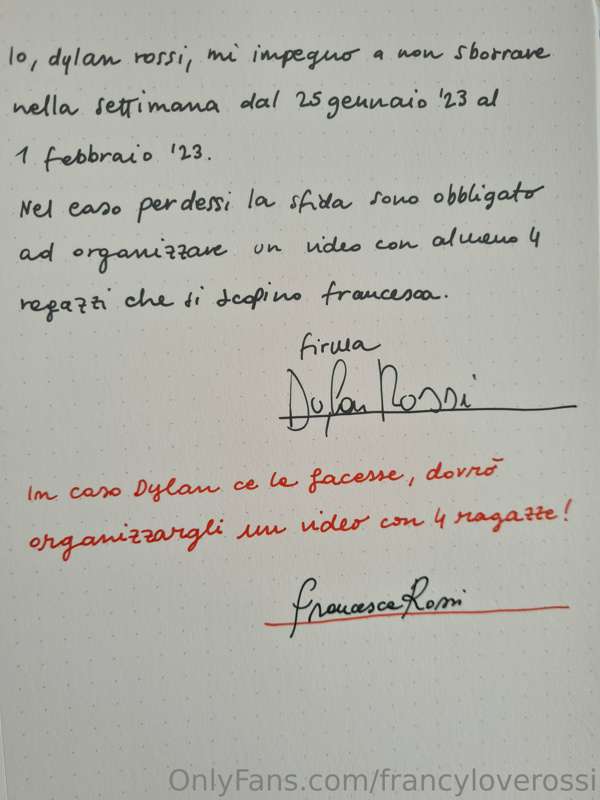 Io, dylan rossi, mi impegno a non sborrare
nella settimana dal 25 gennaio '23 al
1 febbraio '23.
Nel caso perdessi la sfida sono obbligato
ad organizzare un video con almeno 4
ragazzi che si scopino francesca.
firma
Dylan Rossi
In caso Dylan ce la facesse, dovrò
organizzargli un video con 4 ragazze!
Francesca Rossi
OnlyFans.com/francyloverossi